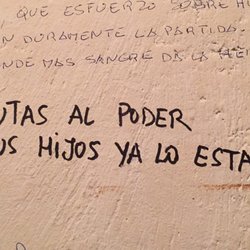 QUE ESFUERZO SOBRE H
N DURAMENTE LA PARTIDA.
NDE MAS SANGRE DA LA
UTAS AL PODER
US HIJOS YA LO ESTA